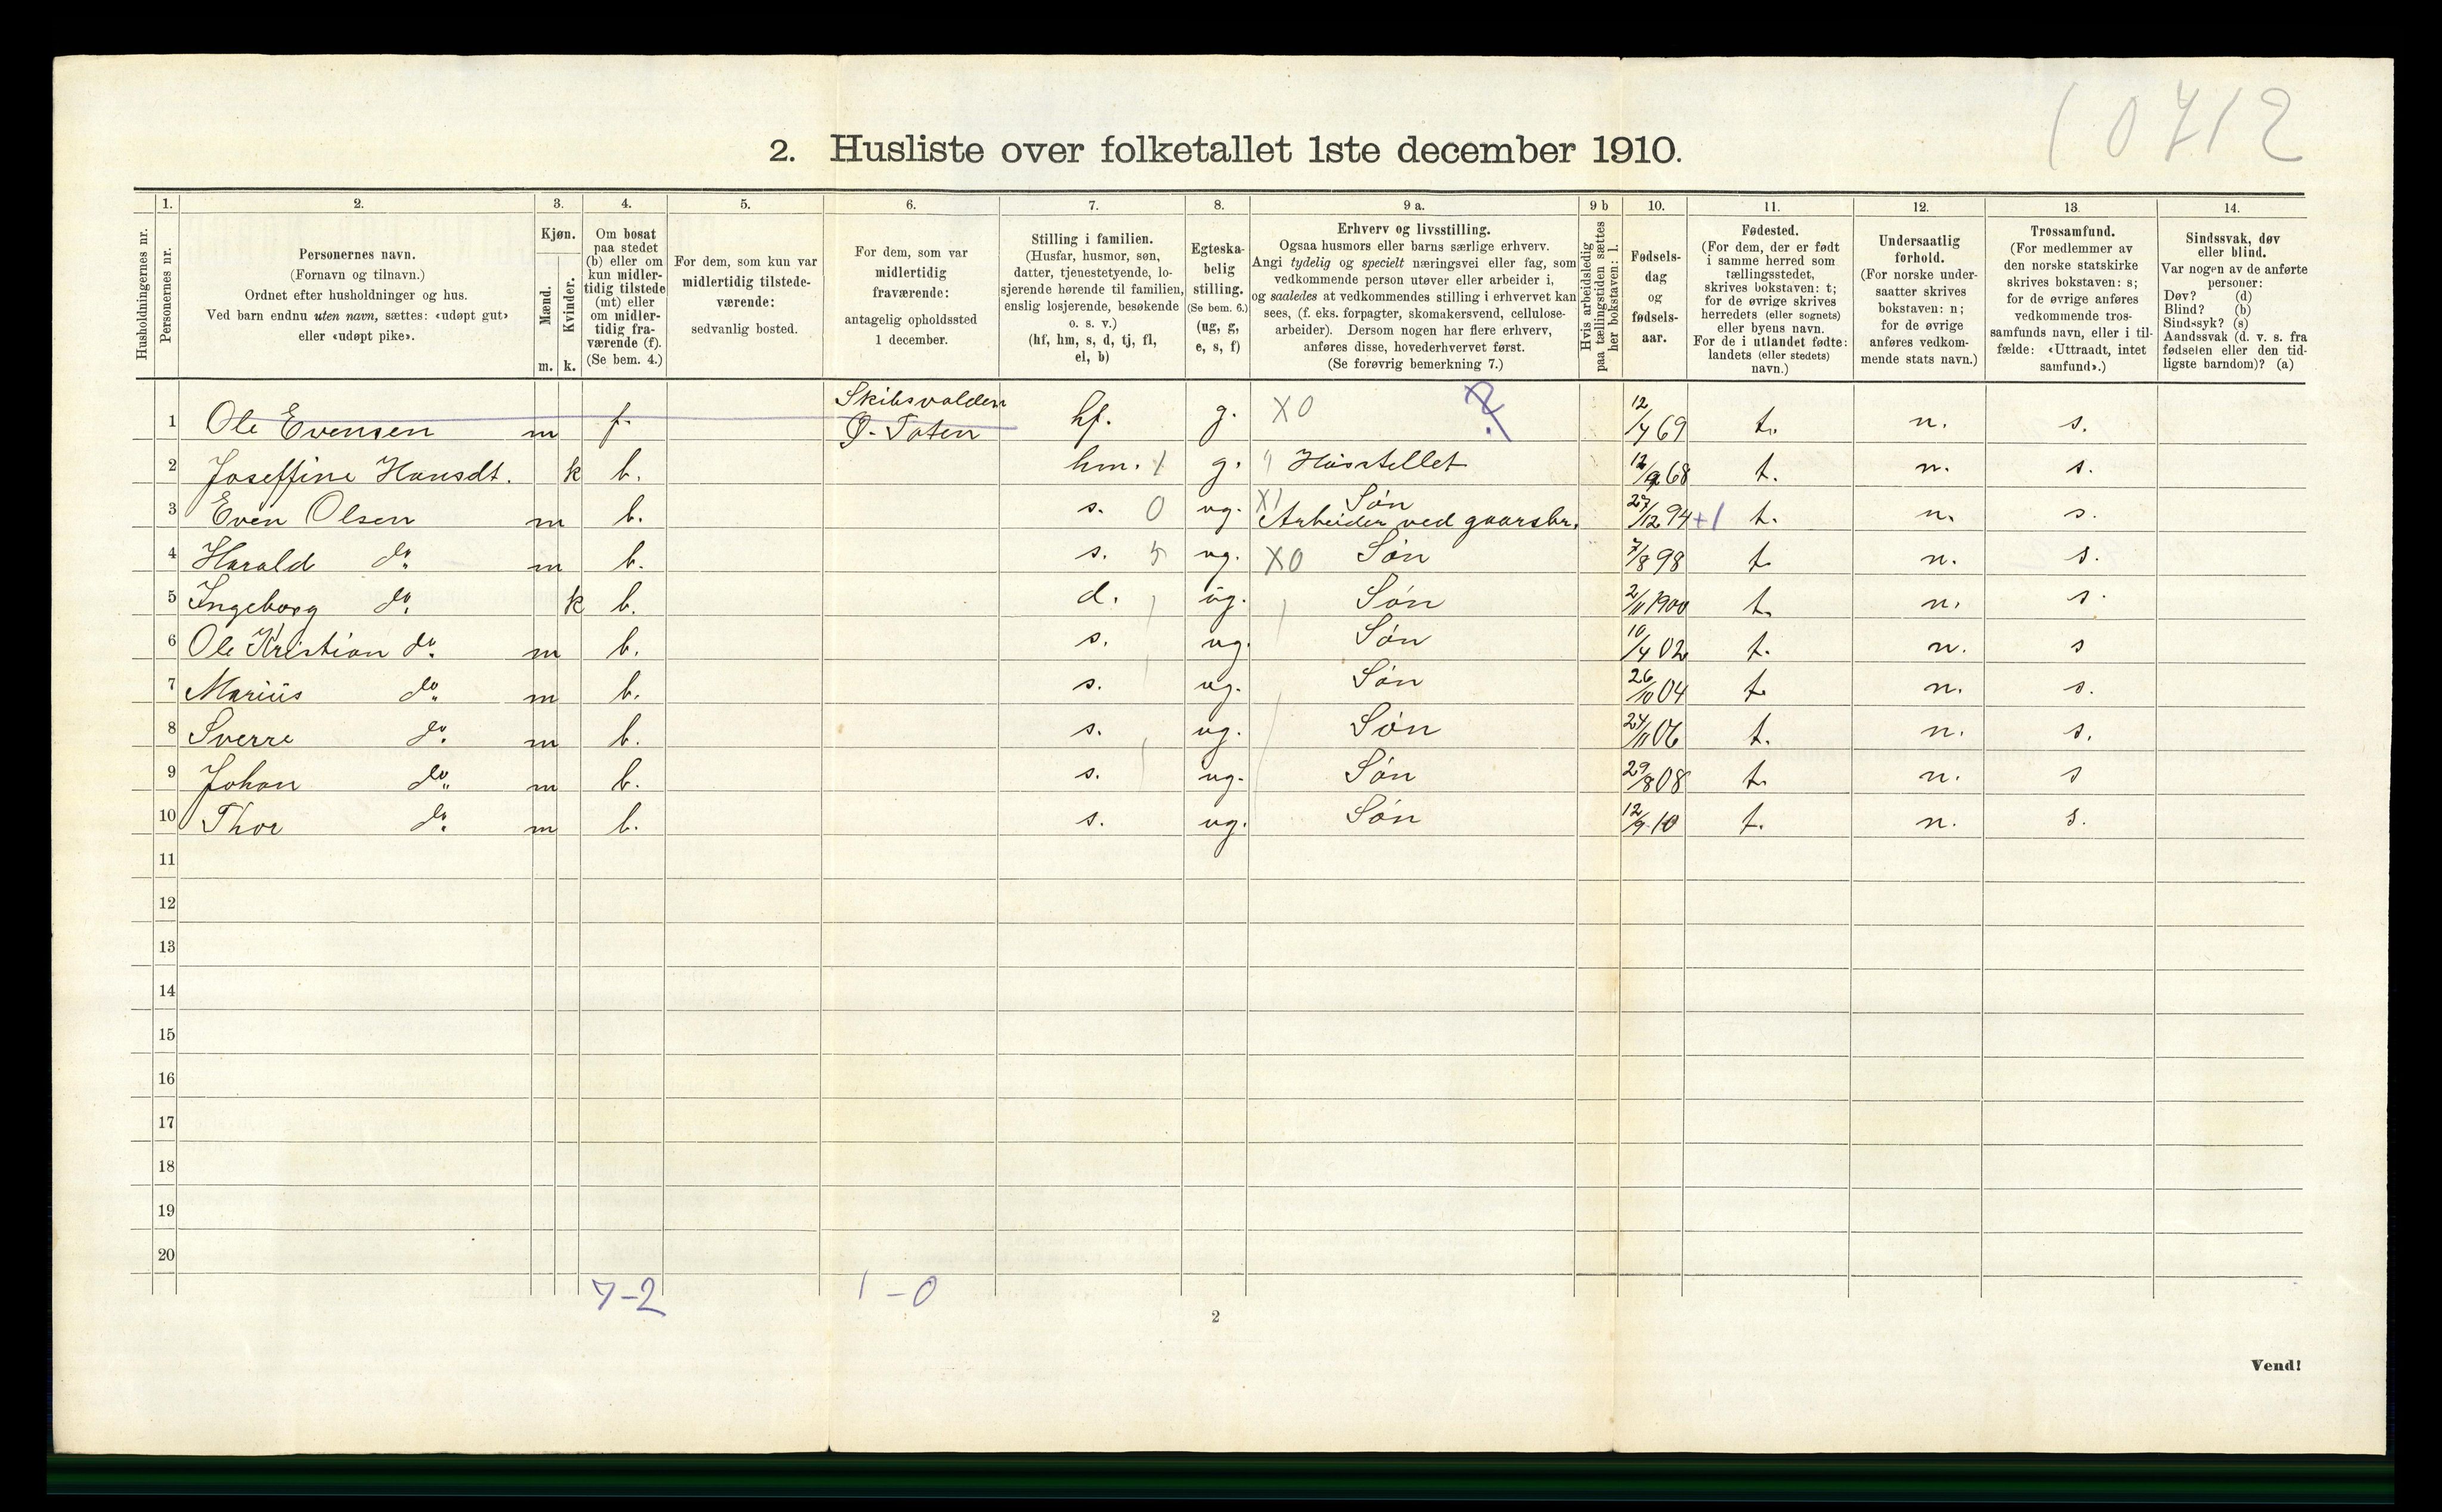 10712
2. Husliste over folketallet 1ste december 1910.
1. 2. 3. 4. 5. 6. 7. 8. 9 a. 9 b 10. 11. 12. 13. 14.
Husholdningernes nr.
Personernes nr.
Personernes navn.
(Fornavn og tilnavn.)
Ordnet efter husholdninger og hus.
Ved barn endnu uten navn, sættes: «udøpt gut»
eller «udøpt pike».
Kjøn.
Mænd.
Kvinder.
m. k.
Om bosat
paa stedet
(b) eller om
kun midler-
tidig tilstede
(mt) eller
om midler-
tidig fra-
værende (f).
(Se bem. 4.)
For dem, som kun var
midlertidig tilstede-
værende:
sedvanlig bosted.
For dem, som var
midlertidig
fraværende:
antagelig opholdssted
1 december.
Stilling i familien.
(Husfar, husmor, søn,
datter, tjenestetyende, lo-
sjerende hørende til familien,
enslig losjerende, besøkende
o. s. v.)
(hf, hm, s, d, tj, fl,
el, b)
Egteska-
belig
stilling.
(Se bem. 6.)
(ug, g,
e, s, f)
Erhverv og livsstilling.
Ogsaa husmors eller barns særlige erhverv.
Angi tydelig og specielt næringsvei eller fag, som
vedkommende person utøver eller arbeider i,
og saaledes at vedkommendes stilling i erhvervet kan
sees, (f. eks. forpagter, skomakersvend, cellulose-
arbeider). Dersom nogen har flere erhverv,
anføres disse, hovederhvervet først.
(Se forøvrig bemerkning 7.)
Hvis arbeidsledig
paa tællingstiden sættes
her bokstaven: l.
Fødsels-
dag
og
fødsels-
aar.
Fødested.
(For dem, der er født
i samme herred som
tællingsstedet,
skrives bokstaven: t;
for de øvrige skrives
herredets (eller sognets)
eller byens navn.
For de i utlandet fødte:
landets (eller stedets)
navn.)
Undersaatlig
forhold.
(For norske under-
saatter skrives
bokstaven: n;
for de øvrige
anføres vedkom-
mende stats navn.)
Trossamfund.
(For medlemmer av
den norske statskirke
skrives bokstaven: s;
for de øvrige anføres
vedkommende tros-
samfunds navn, eller i til-
fælde: «Uttraadt, intet
samfund».)
Sindssvak, døv
eller blind.
Var nogen av de anførte
personer:
Døv? (d)
Blind? (b)
Sindssyk? (s)
Aandssvak (d. v. s. fra
fødselen eller den tid-
ligste barndom)? (a)
Skibsvolden
1 Ole Evensen m f. Ø. Toten hf. g. X0 ? 12/4 69 t. n. s.
2 Joseffine Hansdt. k b. hm. 1 g. Husstellet 12/9 68 t. n. s.
X1 Søn
3 Even Olsen m b. s. 0 ug. Arbeider ved gaarsbr. 27/12 94 +1 t. n. s.
4 Harald do. m b. s. 5 ug. X0 Søn 7/8 98 t. n. s.
5 Ingeborg do. k b. d. ug. Søn 2/11 1900 t. n. s.
6 Ole Kristian do. m b. s. ug. Søn 10/4 02 t. n. s
7 Marius do. m b. s. ug. Søn 26/10 04 t. n. s.
8 Sverre do. m b. s. ug. Søn 24/11 06 t. n. s.
9 Johan do. m b. s. ug. Søn 29/8 08 t. n. s
10 Thor do. m b. s. ug. Søn 12/9 10 t. n. s.
11
12
13
14
15
16
17
18
19
20
7-2 1-0
2
Vend!